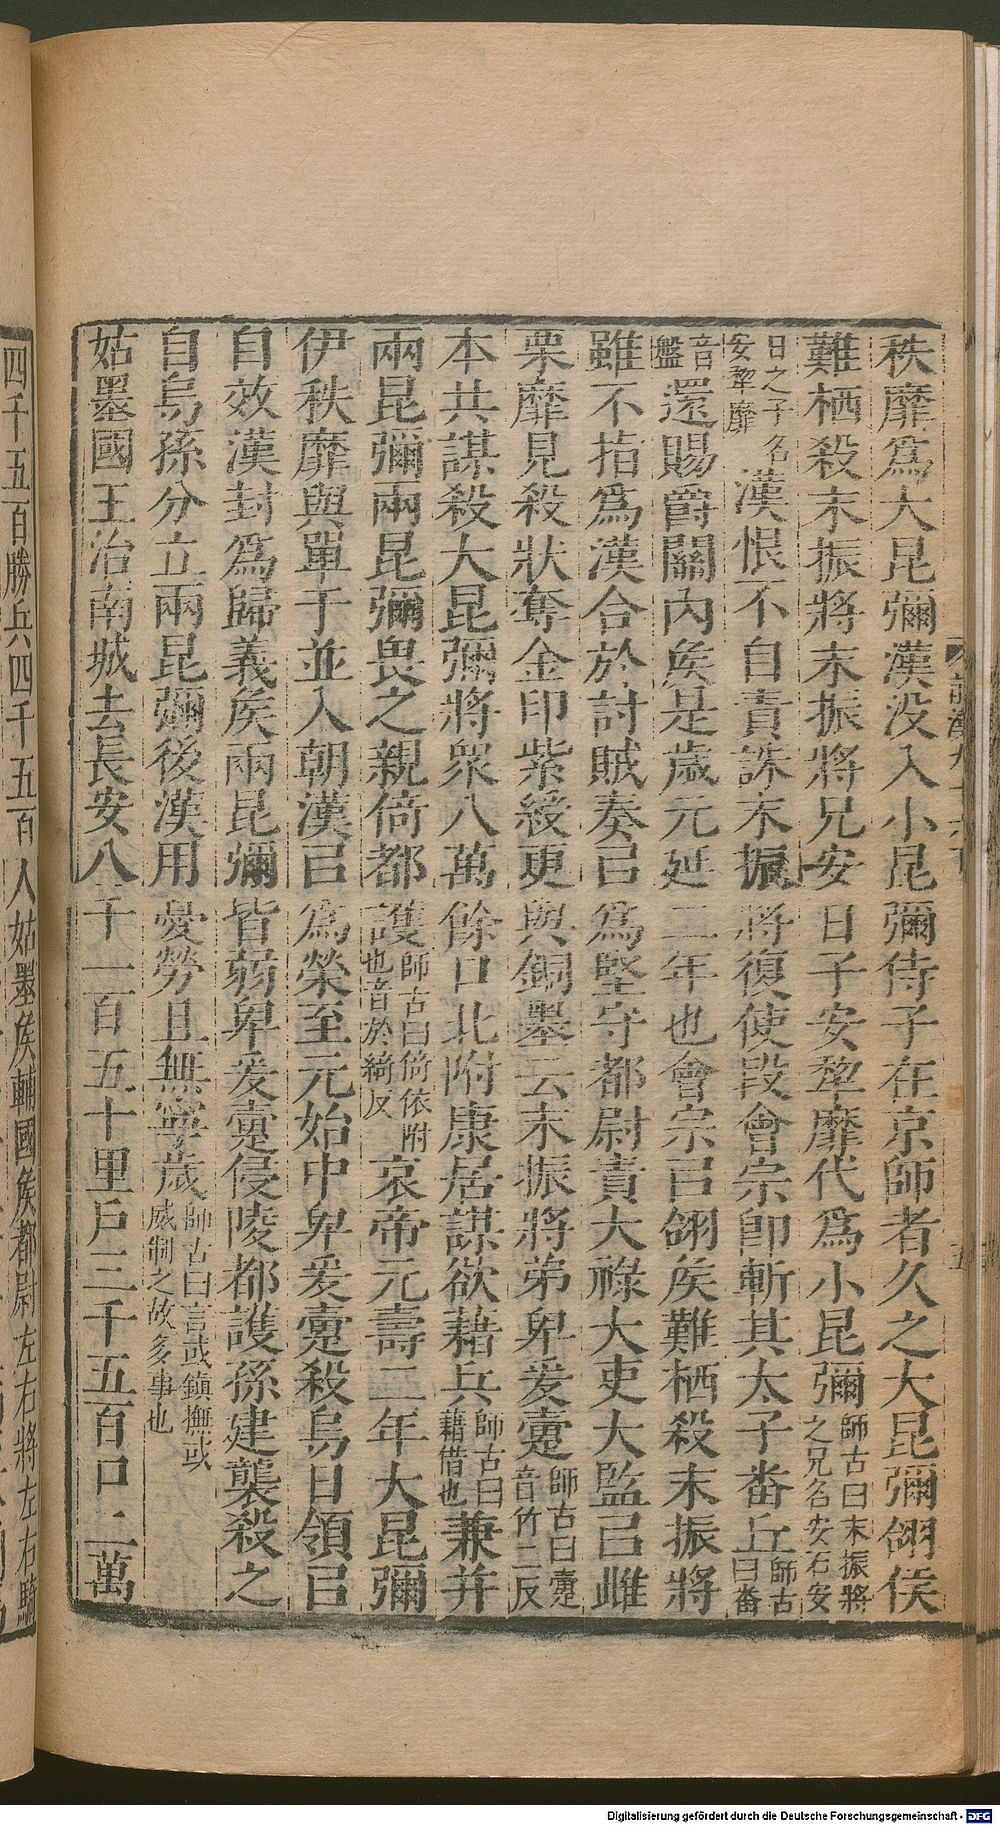 秩靡爲大昆彌漢没入小昆彌侍子在京師者久之大昆彌翎侯
難栖殺末振將末振將兄安日子安犂靡代爲小昆彌師古曰末振將之兄名安石安
日之子名安犂靡漢恨不自責誅末振將復使段會宗即斬其太子番丘師古曰番
音盤還賜爵關内矦是歲元延二年也會宗㠯翎矦難栖殺末振將
雖不指爲漢合於討賊奏㠯爲堅守都尉責大祿大吏大監㠯雌
栗靡見殺狀奪金印紫綬更與銅墨云末振將弟卑爰疐師古曰疐音竹二反
本共謀殺大昆彌將衆八萬餘口北附康居謀欲藉兵師古曰藉借也兼并
兩昆彌兩昆彌畏之親倚都護師古曰倚依附也音於綺反哀帝元壽二年大昆彌
伊秩靡與單于並入朝漢㠯爲榮至元始中卑爰疐殺烏日領㠯
自效漢封爲歸義矦兩昆彌皆弱卑爰疐侵陵都護孫建襲殺之
自烏孫分立兩昆彌後漢用憂勞且無寧歲師古曰言或鎮撫或威制之故多事也
姑墨國王治南城去長安八千一百五十里戶三千五百口二萬
四千五百勝兵四千五百人姑墨矦輔國矦都尉左右將左右騎
Digitalisierung gefördert durch die Deutsche Forschungsgemeinschaft - DFG